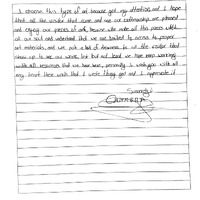 I choose this type of art because got my attention and I hope
that all the visitor that come and see our craftmanship are pleased
and enjoy our pieces of art, because who make all this pieces with
all our soul and understand that we are limited to access to proper
art materials, and we put a lot of to all the visitor that
show up to see our work, but not least we have been working
with all resources that we have here, personally I wish you with all
my heart there wish that I wrote things got and I appreciate it
Sincerely